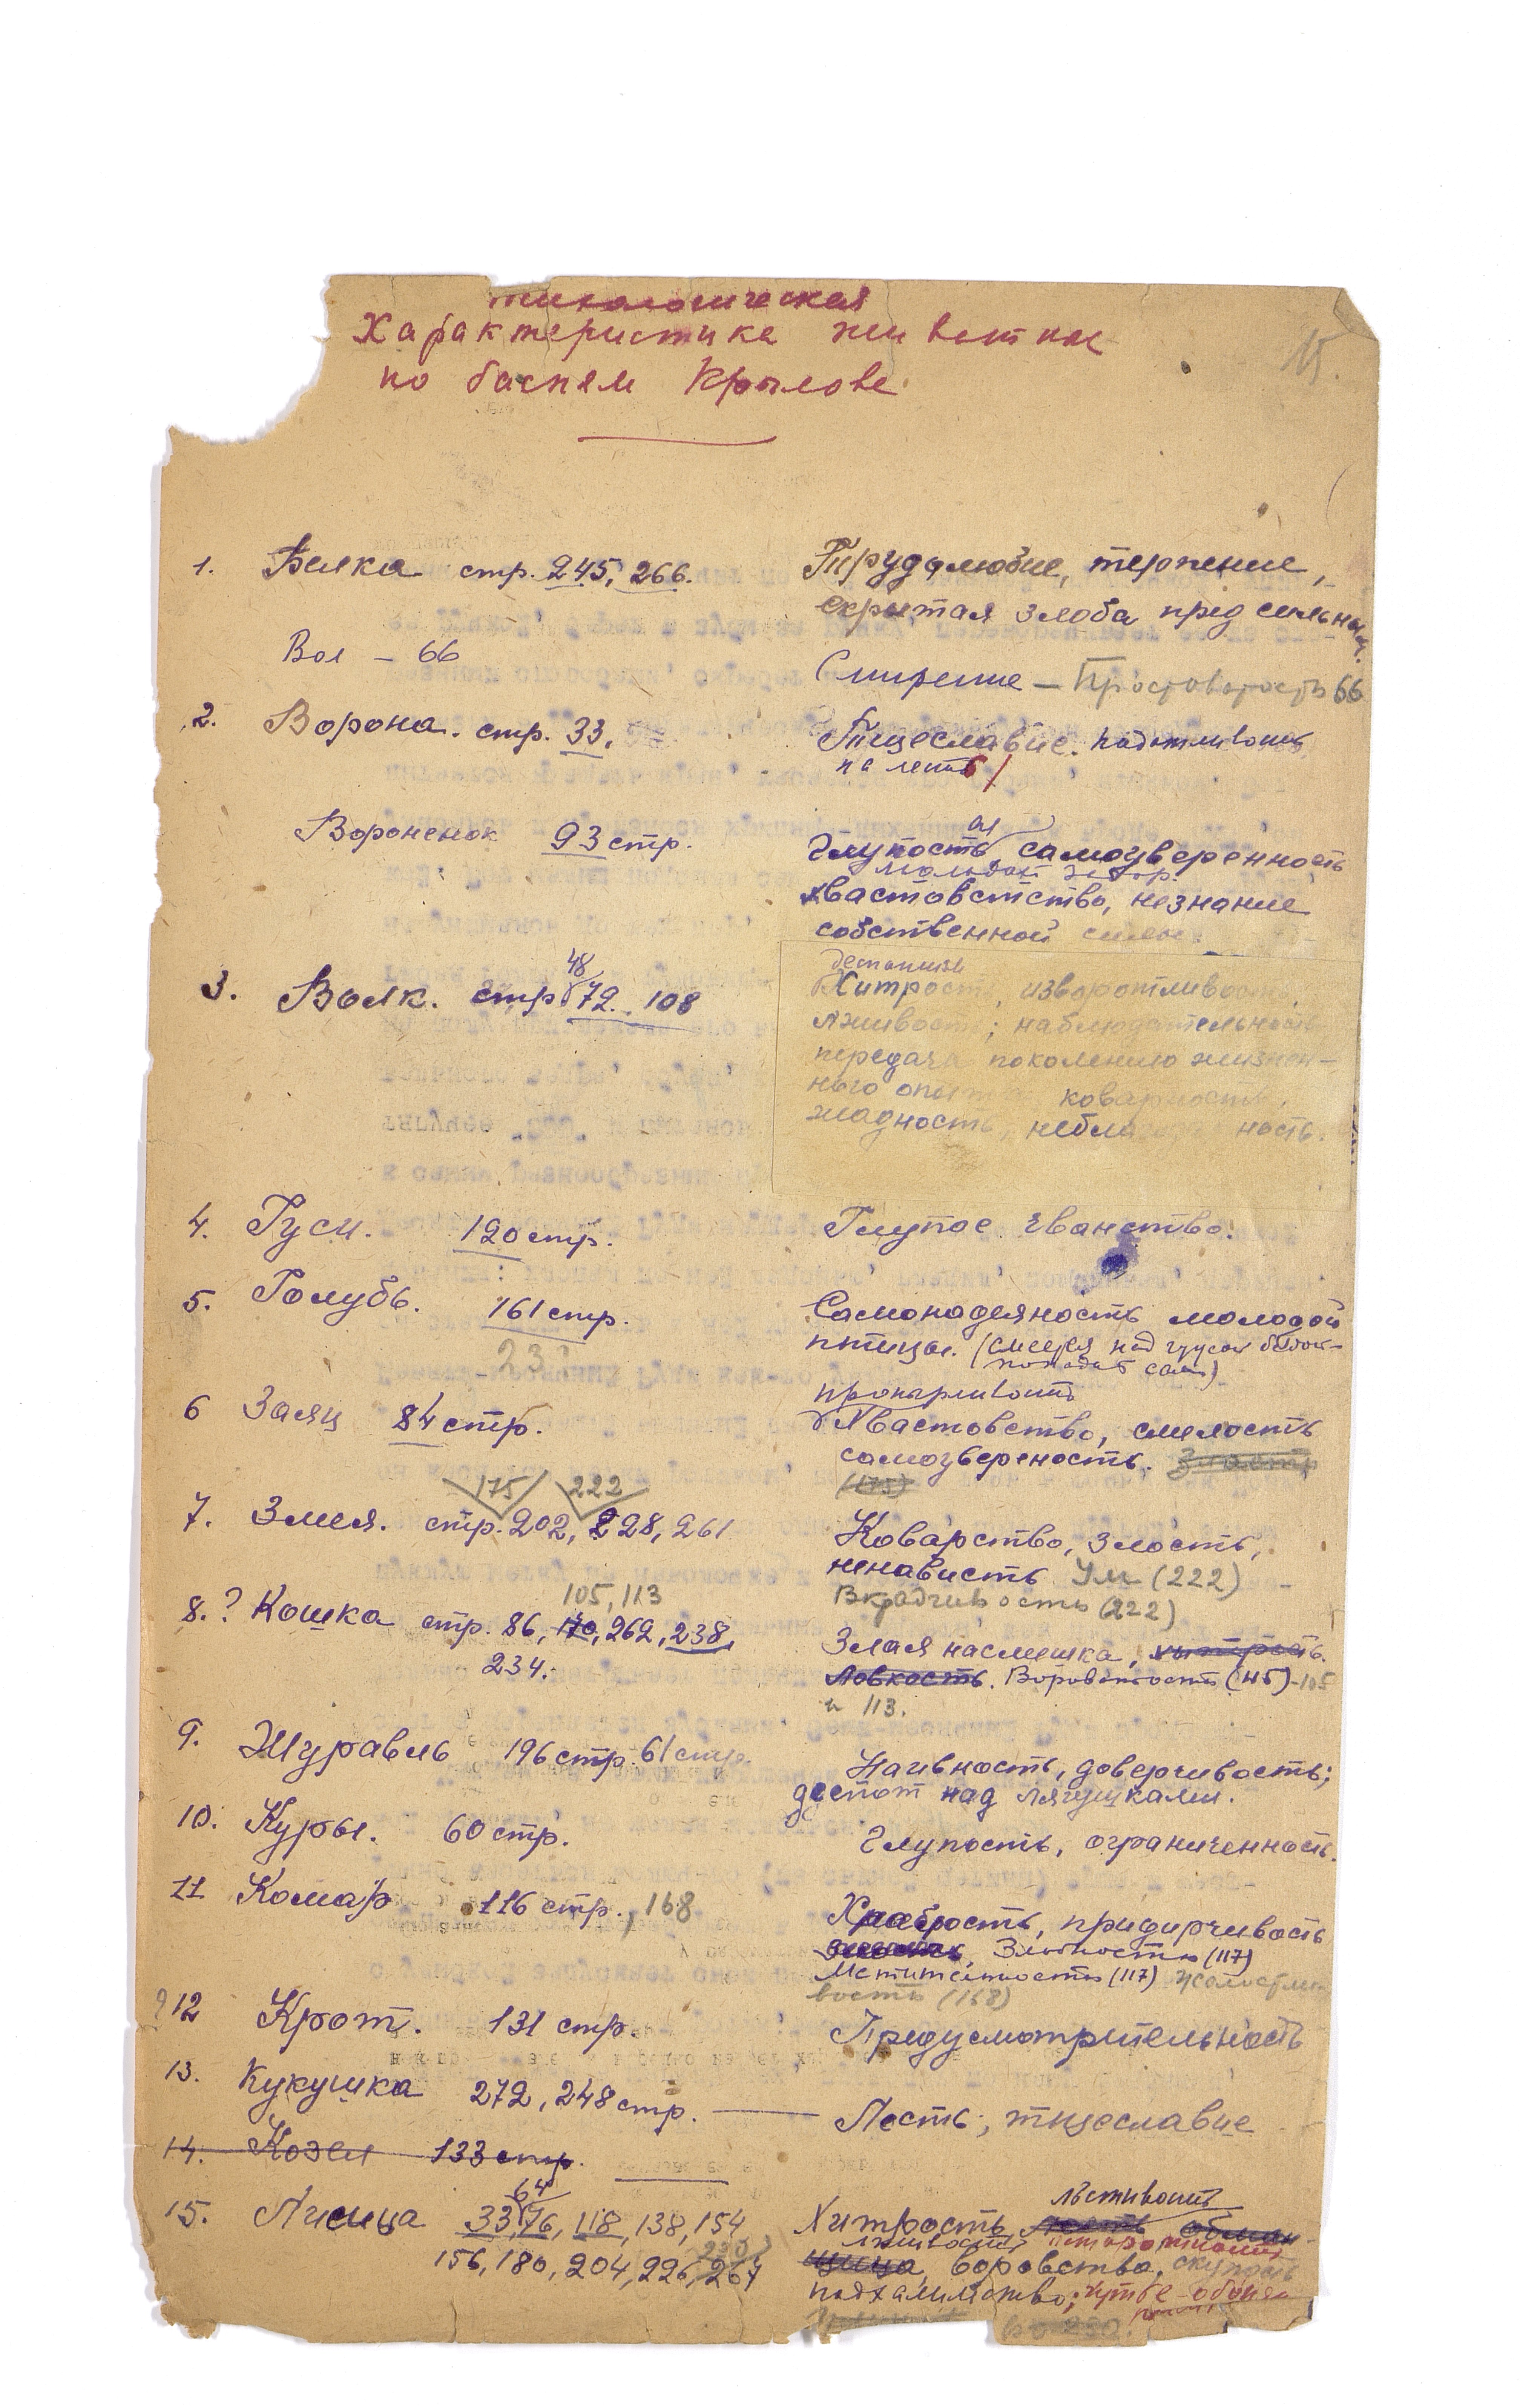 типологическая
Характеристика животных
по басням Крылова
15.
1. Белка стр. 245, 266. Трудолюбие, терпение,
скрытая злоба пред сильным.
Вол – 66 Смирение – Простоватость 66
2. Ворона. стр. 33, Тщеславие. Падкость
на лесть
Вороненок 93 стр. Глупость, самоуверенность
хвастовство, незнание
собственной силы.
48
3. Волк. стр 72. 108 Хитрость, изворотливость,
лживость; наблюдательность
передача поколению жизнен-
ного опыта коварность,
жадность, неблагодарность.
4. Гуси. 120 стр. Глупое чванство.
5. Голубь. 161 стр. Самонадеяность молодой
23 птицы. (смеется над
попадает сам)
6 Заяц 84 стр. Хвастовство, смелость
самоувереность.
175 222 (175)
7. Змея. стр. 202, 228, 261 Коварство, злость,
ненависть Ум (222)
105, 113 Вкрадчивость (222)
8. ? Кошка стр. 86, 170, 262, 238, Злая насмешка, хитрость.
234. Ловкость. Вороватость (115) - 105
и 113.
9. Журавль 196 стр. 61 стр. Наивность, доверчивость;
деспот над лягушками.
10. Куры. 60 стр. Глупость, ограниченность.
11 Комар 116 стр., 168 Храбрость, придирчивость
Злобность (117)
Мстительность (117) Жалостли
вость (168)
? 12 Крот. 131 стр. Предусмотрительность
13. Кукушка 272, 248 стр. — Лесть, тщеславие
14. Козел 133 стр.
64 льстивость
15. Лисица 33, 76, 118, 138, 154 Хитрость, лесть обман-
лживость осторожность
230
156, 180, 204, 226, 267 щица, воровство, скупость
подхалимство; чутье – обоня
ние